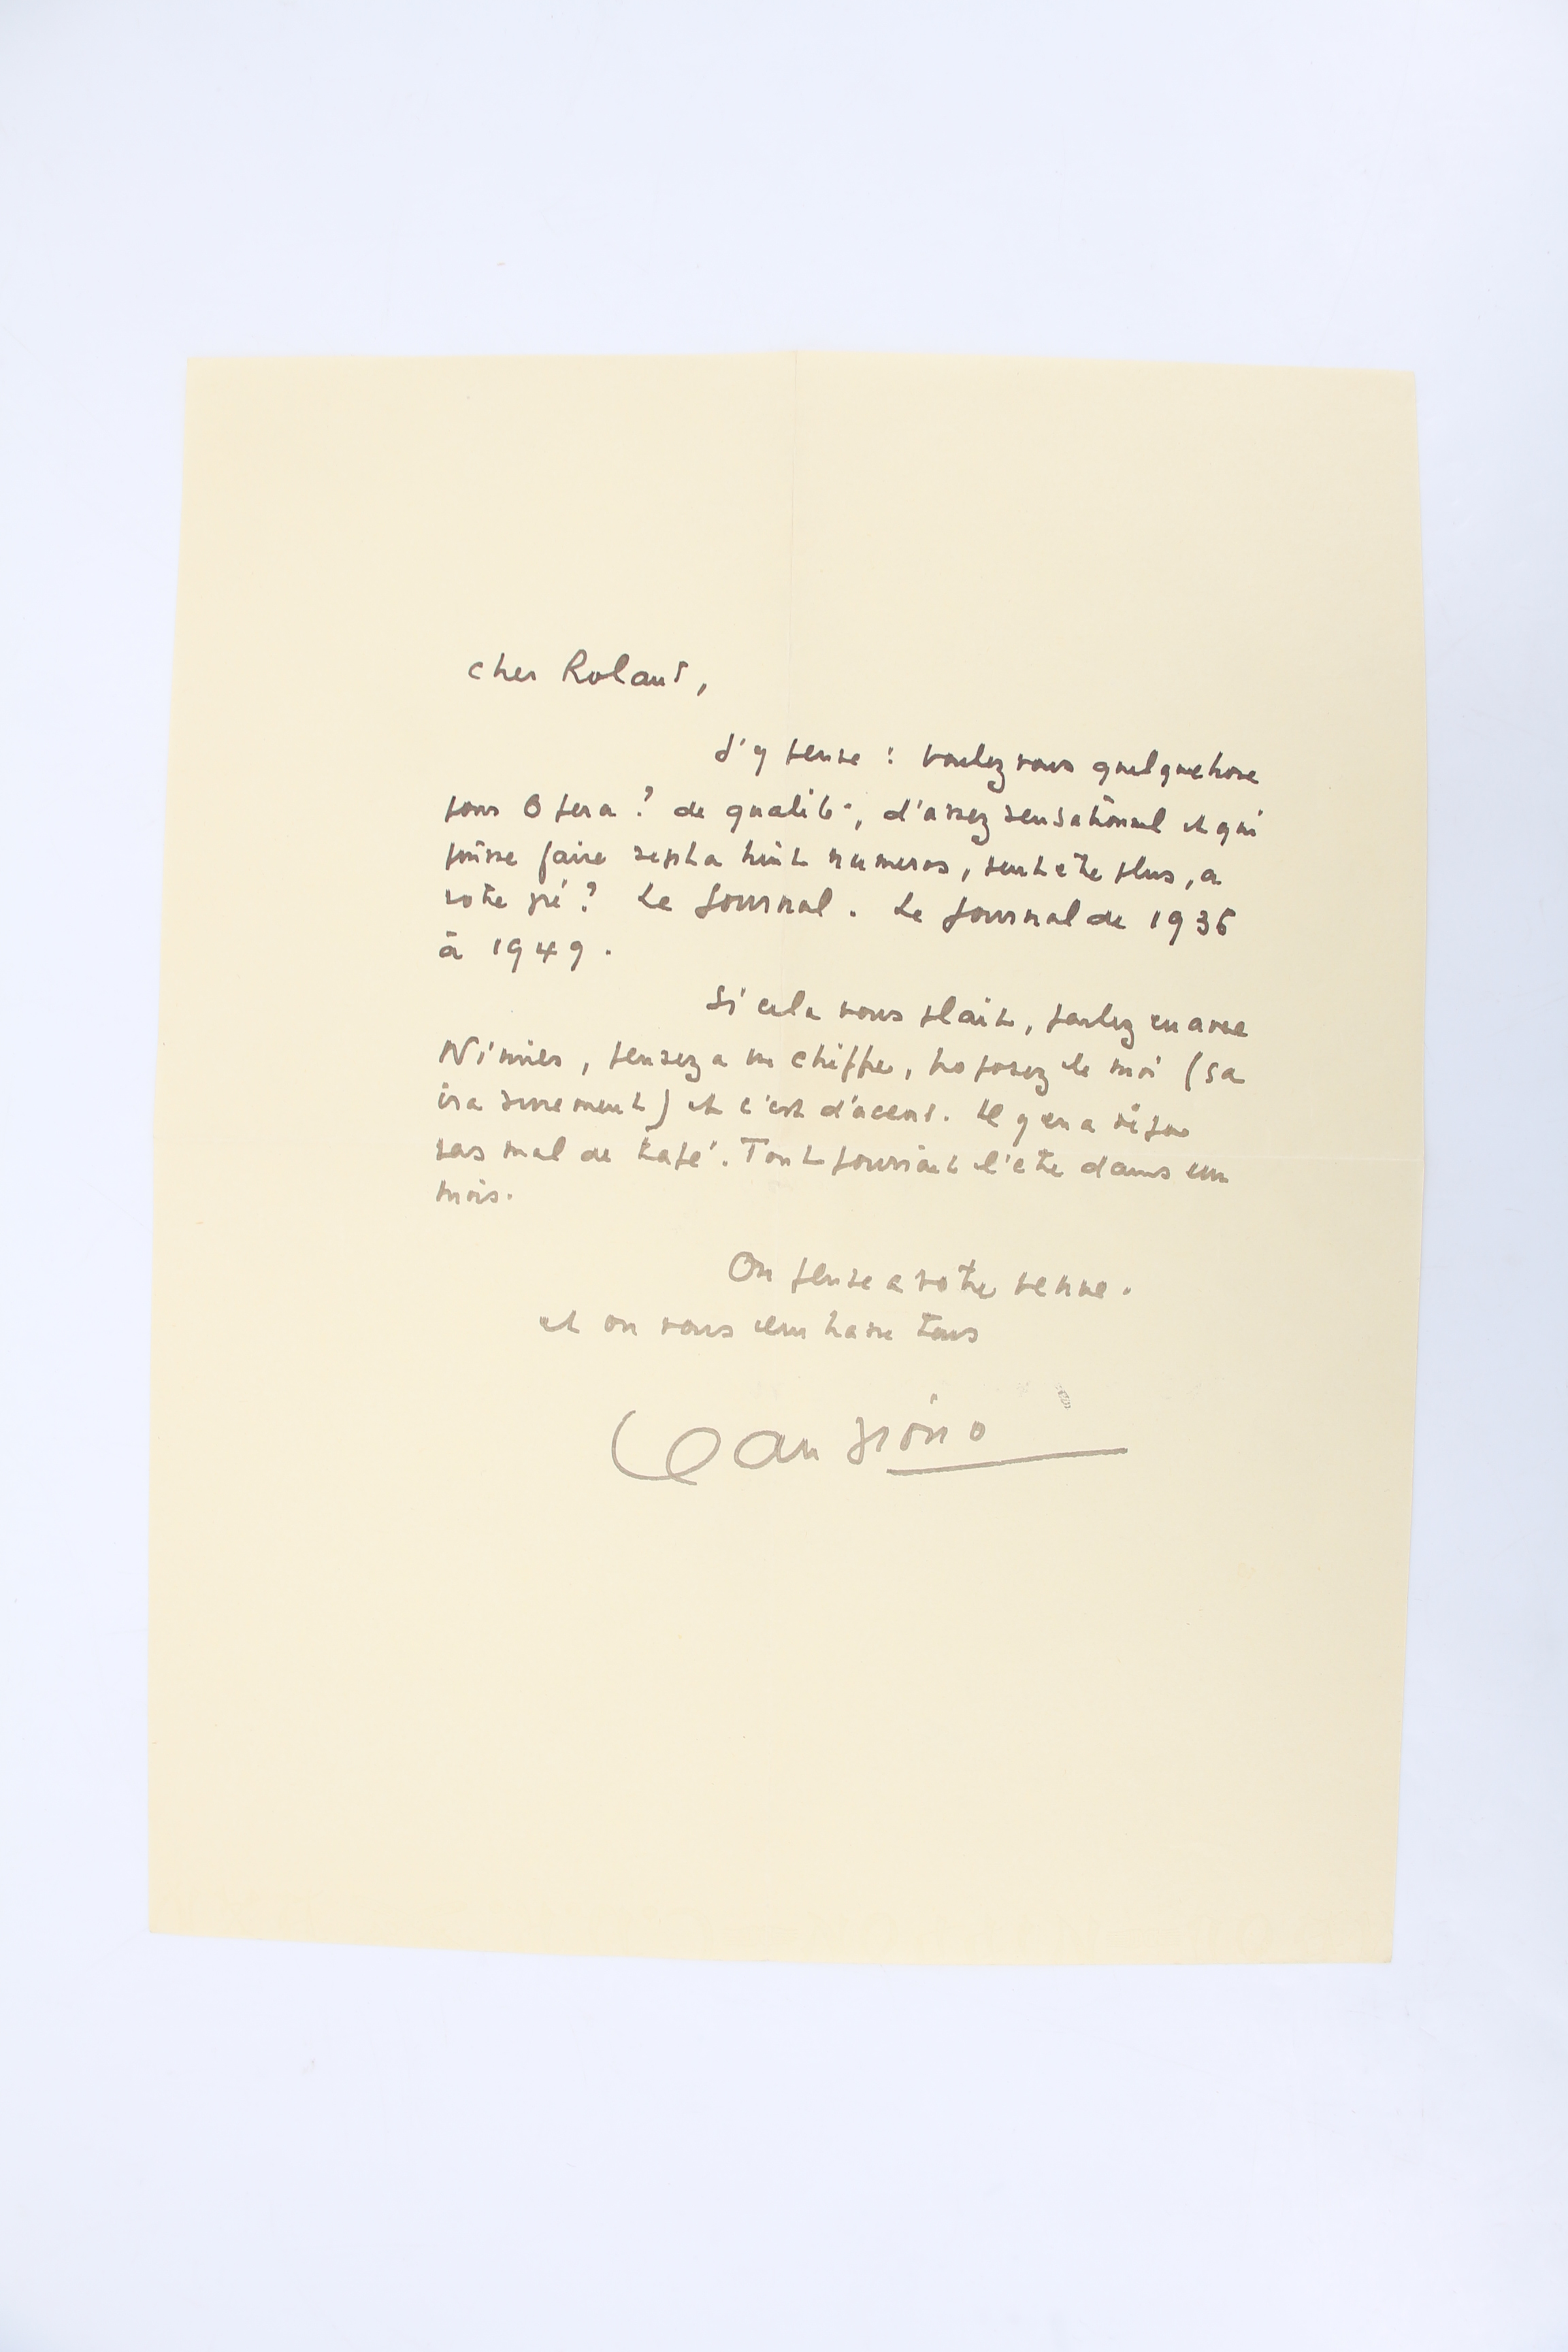 Cher Roland,
J'y pense : voulez vous quelquechose
pour Opera ? de qualité, d'assez sensationnel et qui
puisse faire sept a huit numeros, peut etre plus, a
votre gré ? Le Journal. Le Journal de 1936
à 1949.
Si cela vous plait, parlez en avec
Nimier, pensez a un chiffre, proposez le moi (sa
ira surement) et c'est d'accord. Il y en a déja
pas mal de tapé. Tout pourrait l'etre dans un
mois.
On pense a votre venue.
et on vous embrasse tous
Jean Giono